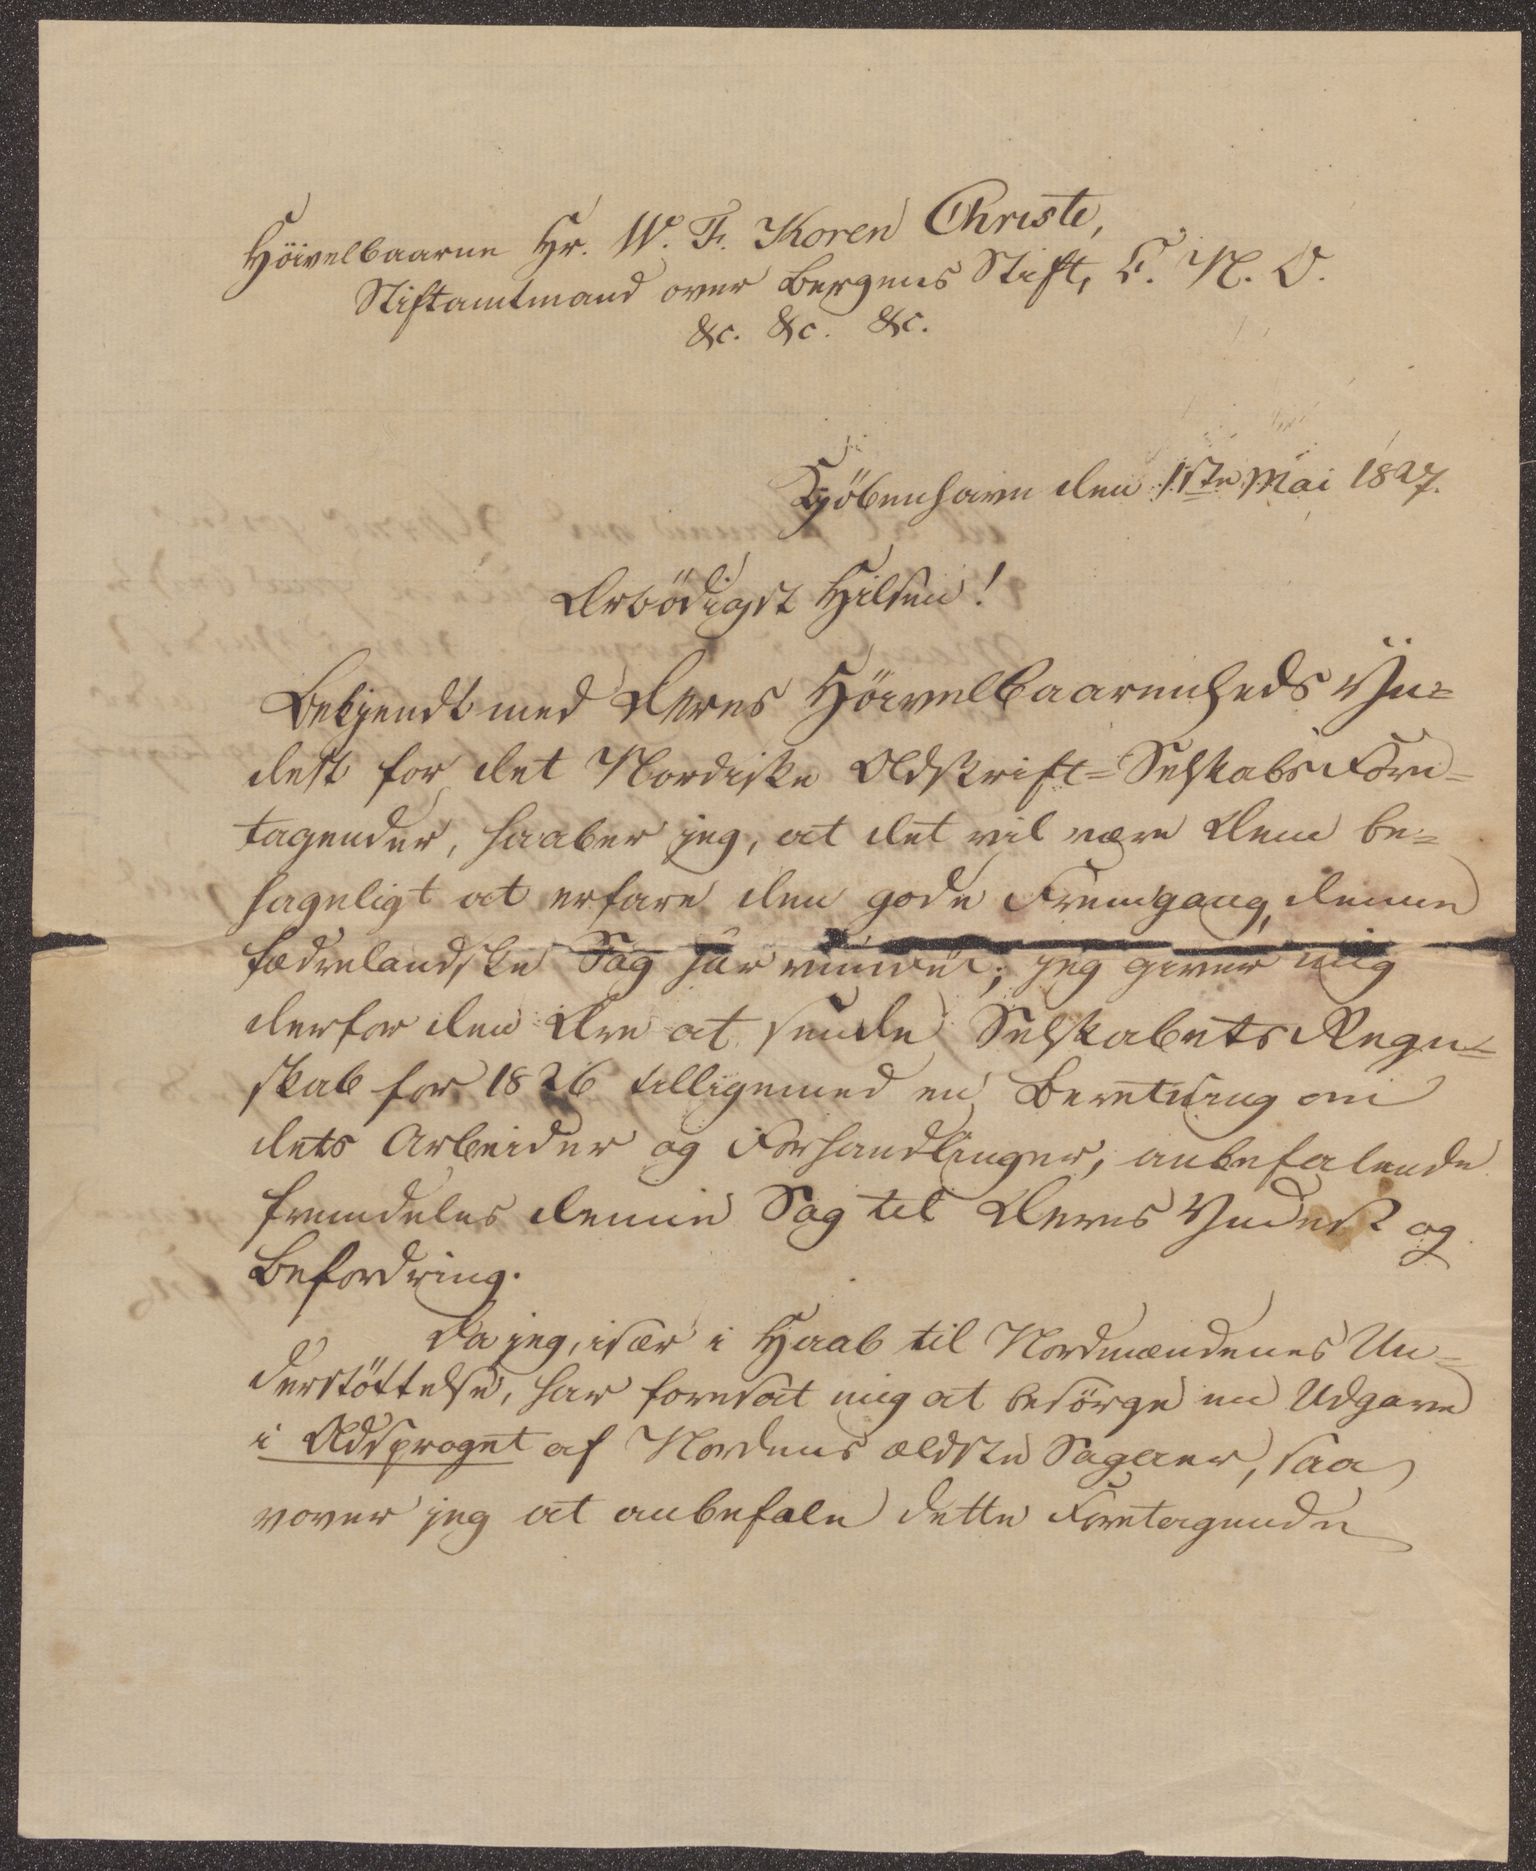 Höivelbaarne Hr. W. F. Koren Christie,
Stiftamtmand over Bergens Stift, C. N. O.
&c. &c. &c.
Kjöbenhavn den 1ste Mai 1827.
Ærbödigst Hilsen!
Bekjendt med Deres Höivelbaarenheds Yn-
dest for det Nordiske Oldskrift-Selskabs Fore-
tagender, haaber jeg, at det vil være Dem be-
hageligt at erfare den gode Fremgang, denne
fædrelandske Sag har vundet; jeg giver mig
derfor den Ære at sende Selskabets Regn-
skab for 1826 tilligemed en Beretning om
dets Arbeider og Forhandlinger, anbefalende
fremdeles denne Sag til Deres Yndest og
Befordring.
Da jeg, især i Haab til Nordmændenes Un-
derstöttelse, har foresat mig at besörge en Udgave
i Oldsproget af Nordens ældste Sagaer, saa
vover jeg at anbefale dette Foretagende